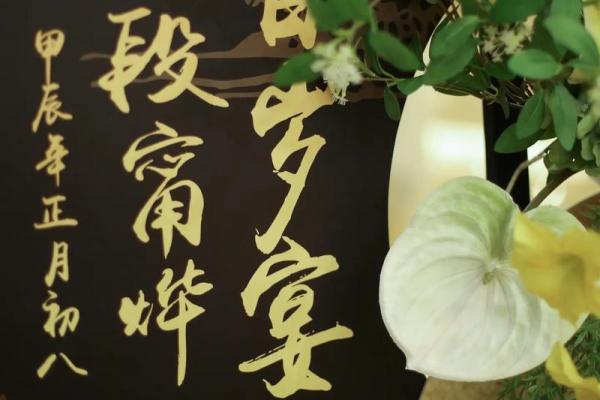 百岁宴
段甯烨
甲辰年正月初八